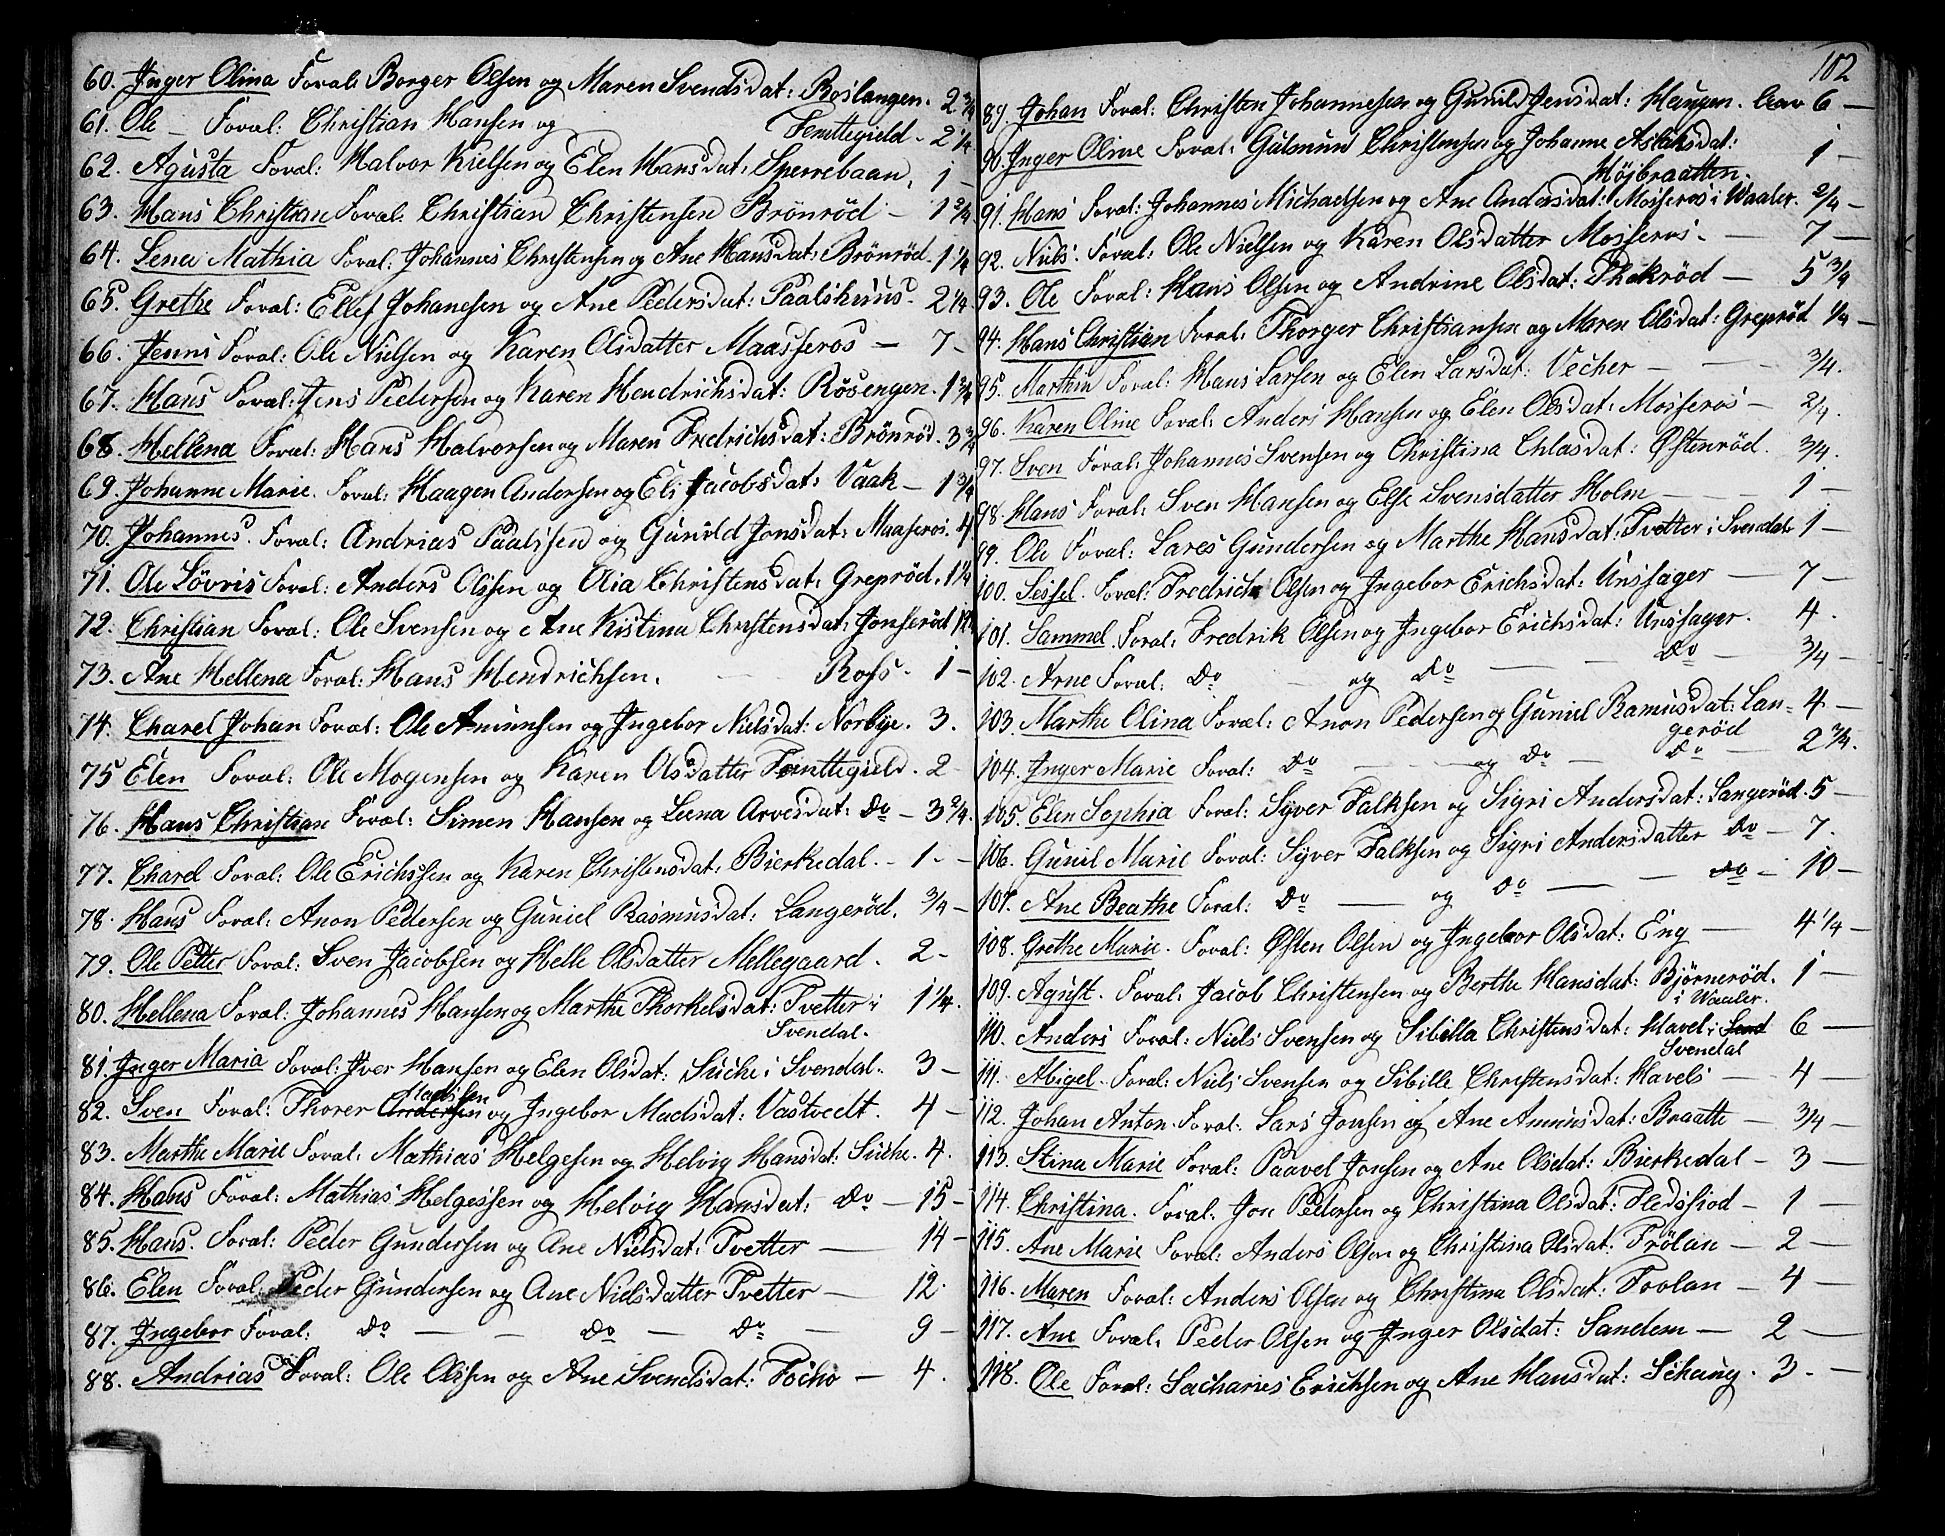 60. Inger Olina Foræl: Borger Olsen og Maren Svendsdat: Roslangen. 2 3/4
61. Ole — Foræl: Christian Hansen og Femttegield - 2 1/4
62. Agusta Foræl: Halvor Nielsen og Elen Hansdat: Sperrebaan. 1 —
63. Hans Christian Foræl: Christian Christensen Brönröd — 1 2/4
64. Lena Mathia Foræl: Johannes Christensen og Ane Hansdat: Brönröd. 1 1/4
65. Grethe Foræl: Ellef Johanesen og Ane Pedersdat: Paalshuus. 2 1/4
66. Jenns Foræl: Ole Nielsen og Karen Olsdatter Maasseros — 7 -
67. Hans Foræl: Jens Pedersen og Karen Hendrichsdat: Rosengen. 1 3/4
68. Hellena Foræl: Hans Halvorsen og Maren Fredrichsdat: Brönröd. 3 3/4
69. Johanne Marie. Foræl: Haagen Andersen og Eli Jacobsdat: Vaak — 1 3/4
70. Johannes. Foræl: Andrias Paalssen og Gunild Jonsdat: Maaseros. 4
71. Ole Lövris Foræl: Anders Olssen og Olia Christensdat: Greprød. 1 1/4
72. Christian Foræl: Ole Svensen og Ane Kistina Christensdat: Jonseröd 12
73. Ane Hellena Foræl: Hans Hendrichsen. — Roes. 1 —
74. Charel Johan Foræl: Ole Amunsen og Ingebor Nielsdat: Norbye. 3.
75 Elen Foræl: Ole Mogensen og Karen Olsdatter Femttegield. 2
76. Hans Christian Foræl: Simen Hansen og Leena Arvesdat: Do — 3 2/4.
77. Charel Foræl: Ole Erichssen og Karen Christensdat: Bierkedal. - 1 - -
78. Hans Foræl: Anon Pedersen og Guniel Rasmusdat: Langeröd. 3/4 —
79. Ole Petter Foræl: Sven Jacobsen og Helle Olsdatter Mellegaard. 2 -
80. Hellena Foræl: Johannes Hansen og Marthe Thorkelsdat: Tvetter i 1 1/4.
Svendal.
81. Inger Maria Foræl: Iver Hansen og Elen Olsdat: Suche i Svendal. 3 —
Madssen
82. Sven Foræl: Thorer Andersen og Ingebor Madsdat: Vastvedt. 4 —
83. Marthe Marie Foræl: Mathias Helgesen og Helvig Hansdat: Suche. 4.
84. Hans Foræl: Mathias Helgessen og Helvig Hansdat: Do — 15 -
85. Hans. Foræl: Peder Gunderssen og Ane Nielsdat: Tvetter — 14 -
86. Elen Foræl: Peder Gundersen og Ane Nielsdatter Tvetter — 12.
87. Ingebor Foræl: Do — — Do — Do — 9 —
88. Andrias Foræl: Ole Olssen og Ane Svendsdat: Focho — 4.
102
89. Johan Foræl: Christen Johannesen og Gunild Jensdat: Haugen. 6 —
90. Inger Oline Foræl: Gulmund Christensen og Johanne Aslaksdat: 1 —
Højbraatten.
91. Hans Foræl: Johannes Michaelsen og Ane Andersdat: Mosseros i Waaler. 2/4 —
92. Niels. Foræl: Ole Nielsen og Karen Olsdatter Mosseros. — 7 —
93. Ole Foræl: Hans Olsen og Andrine Olsdat: Thakröd — 5 3/4
94. Hans Christian Foræl: Thorger Christiansen og Maren Olsdat: Greprød 1/4 —
95. Marthin Foræl: Hans Larsen og Elen Larsdat: Vecher — — 3/4.
96. Karen Oline Foræl: Anders Hansen og Elen Olsdat: Mosseros — 2/4.
97. Sven Foræl: Johannes Svensen og Christina Chlasdat: Østenröd. 3/4.
98. Hans Foræl: Sven Hansen og Else Svensdatter Holm — — 1 —
99. Ole Foræl: Lares Gundersen og Marthe Hansdat: Tvetter i Svendal 1 —
100. Sessel. Foræl: Fredrich Olsen og Ingebor Erichsdat: Unssager — 7 —
101. Sammel Foræl: Fredrik Olsen og Ingebor Erichsdat: Unssager. 4.
102. Arne Foræl: Do — og Do — — Do — 3/4 —
103. Marthe Olina Foræl: Anon Pedersen og Guniel Ramusdat: Lan- 4 —
geröd
104. Inger Marie Foræl: Do — — og Do — Do — 2 3/4.
105. Elen Sophia Foræl: Syver Falksen og Sigri Andersdat: Langeröd. 5 —
106. Guniel Marie Foræl: Syver Falksen og Sigri Andersdatter Do — 7.
107. Ane Beathe Foræl: Do — og Do — — Do — 10 —
108. Grethe Marie. Foræl: Østen Olsen og Ingebor Olsdat: Eng — 4 1/4 —
109. Agust. Foræl: Jacob Christensen og Berthe Hansdat: Bjørneröd. 1 —
i Waaler.
110. Anders Foræl: Niels Svensen og Sibilla Christensdat: Havel i 6 —
Svendal
111. Abigel. Foræl: Niels Svensen og Sibille Christensdat: Havels — 4 —
112. Johan Anton. Foræl: Lars Jonsen og Ane Amunsdat: Braatte — 3/4 —
113. Stina Marie Foræl: Paavel Jonsen og Ane Olsdat: Bierkedal — 3 —
114. Christina. Foræl: Jon Pedersen og Christina Olsdat: Fledsfiod — 1 —
115. Ane Marie Foræl: Anders Olsen og Christina Olsdat: Frölan — 2 —
116. Maren Foræl: Anders Olsen og Christina Olsdat: Forlan — 4 —
117. Ane Foræl: Peder Olsen og Inger Olsdat: Sandem — 2 —
118. Ole Foræl: Sacharies Erichsen og Ane Hansdat: Schaug. 3. —